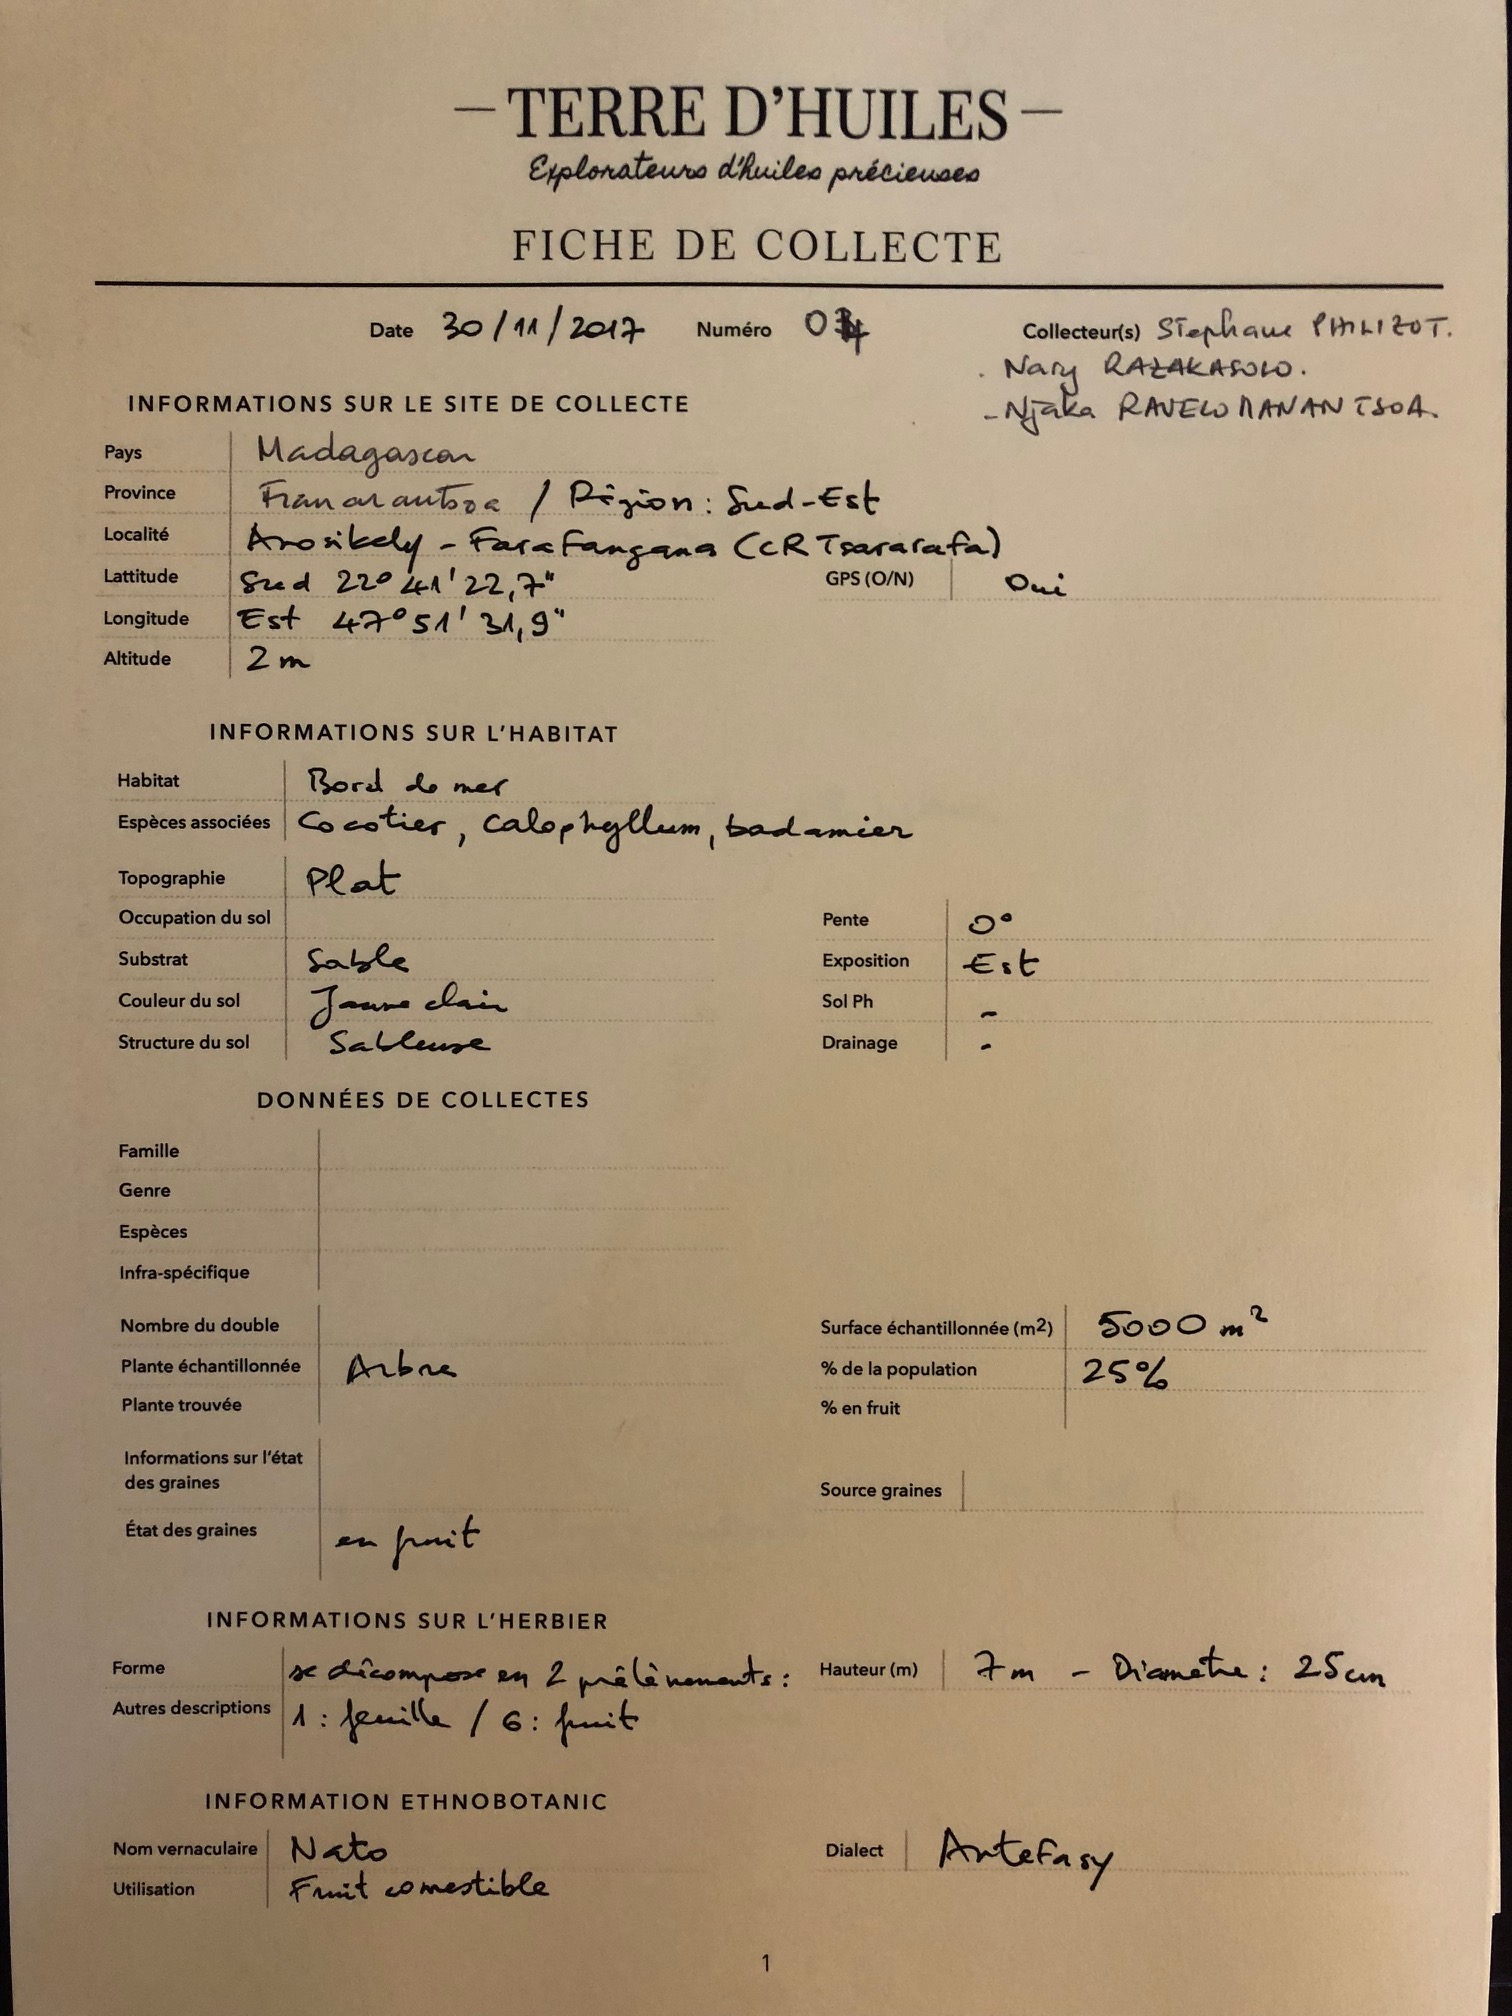 TERRE D'HUILES
Explorateurs d'huiles précieuses
FICHE DE COLLECTE
Date 30/11/2017 Numéro 034 Collecteur(s) Stephane PHILIZOT.
. Nary RAZAKASOLO.
- Njaka RAVELOMANANTSOA.
INFORMATIONS SUR LE SITE DE COLLECTE
Pays Madagascar
Province Fianarantsoa / Région : Sud-Est
Localité Arosikely - Farafangana (CR Tsararafa)
Lattitude Sud 22° 41' 22,7" GPS (O/N) Oui
Longitude Est 47° 51' 31,9"
Altitude 2 m
INFORMATIONS SUR L'HABITAT
Habitat Bord de mer
Espèces associées Cocotier, calophyllum, badamier
Topographie Plat
Occupation du sol Pente 0°
Substrat Sable Exposition Est
Couleur du sol Jaune clair Sol Ph -
Structure du sol Sableuse Drainage -
DONNÉES DE COLLECTES
Famille
Genre
Espèces
Infra-spécifique
Nombre du double Surface échantillonnée (m2) 5000 m²
Plante échantillonnée Arbre % de la population 25%
Plante trouvée % en fruit
Informations sur l'état
des graines Source graines
État des graines en fruit
INFORMATIONS SUR L'HERBIER
Forme se décompose en 2 prélèvements : Hauteur (m) 7 m - Diamètre : 25 cm
Autres descriptions 1 : feuille / 6 : fruit
INFORMATION ETHNOBOTANIC
Nom vernaculaire Nato Dialect Antefasy
Utilisation Fruit comestible
1